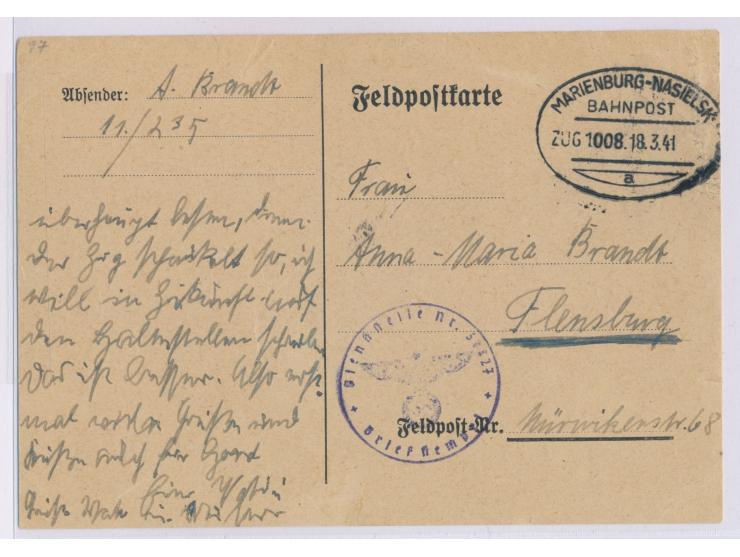 97
Absender: A. Brandt
11./235
überhaupt lesen, denn
der Zug schaukelt so, ich
will in Zukunft auf
den Haltestellen schreiben
Das ist besser. Also erst
mal viele Grüße und
Küsse auch für
Feldpostkarte
MARIENBURG-NASIELSK
BAHNPOST
ZUG 1008. 18.3.41
a
Frau
Anna-Maria Brandt
Flensburg
Dienststelle Nr.
Briefstempel
Feldpost-Nr. Mürwikerstr. 68